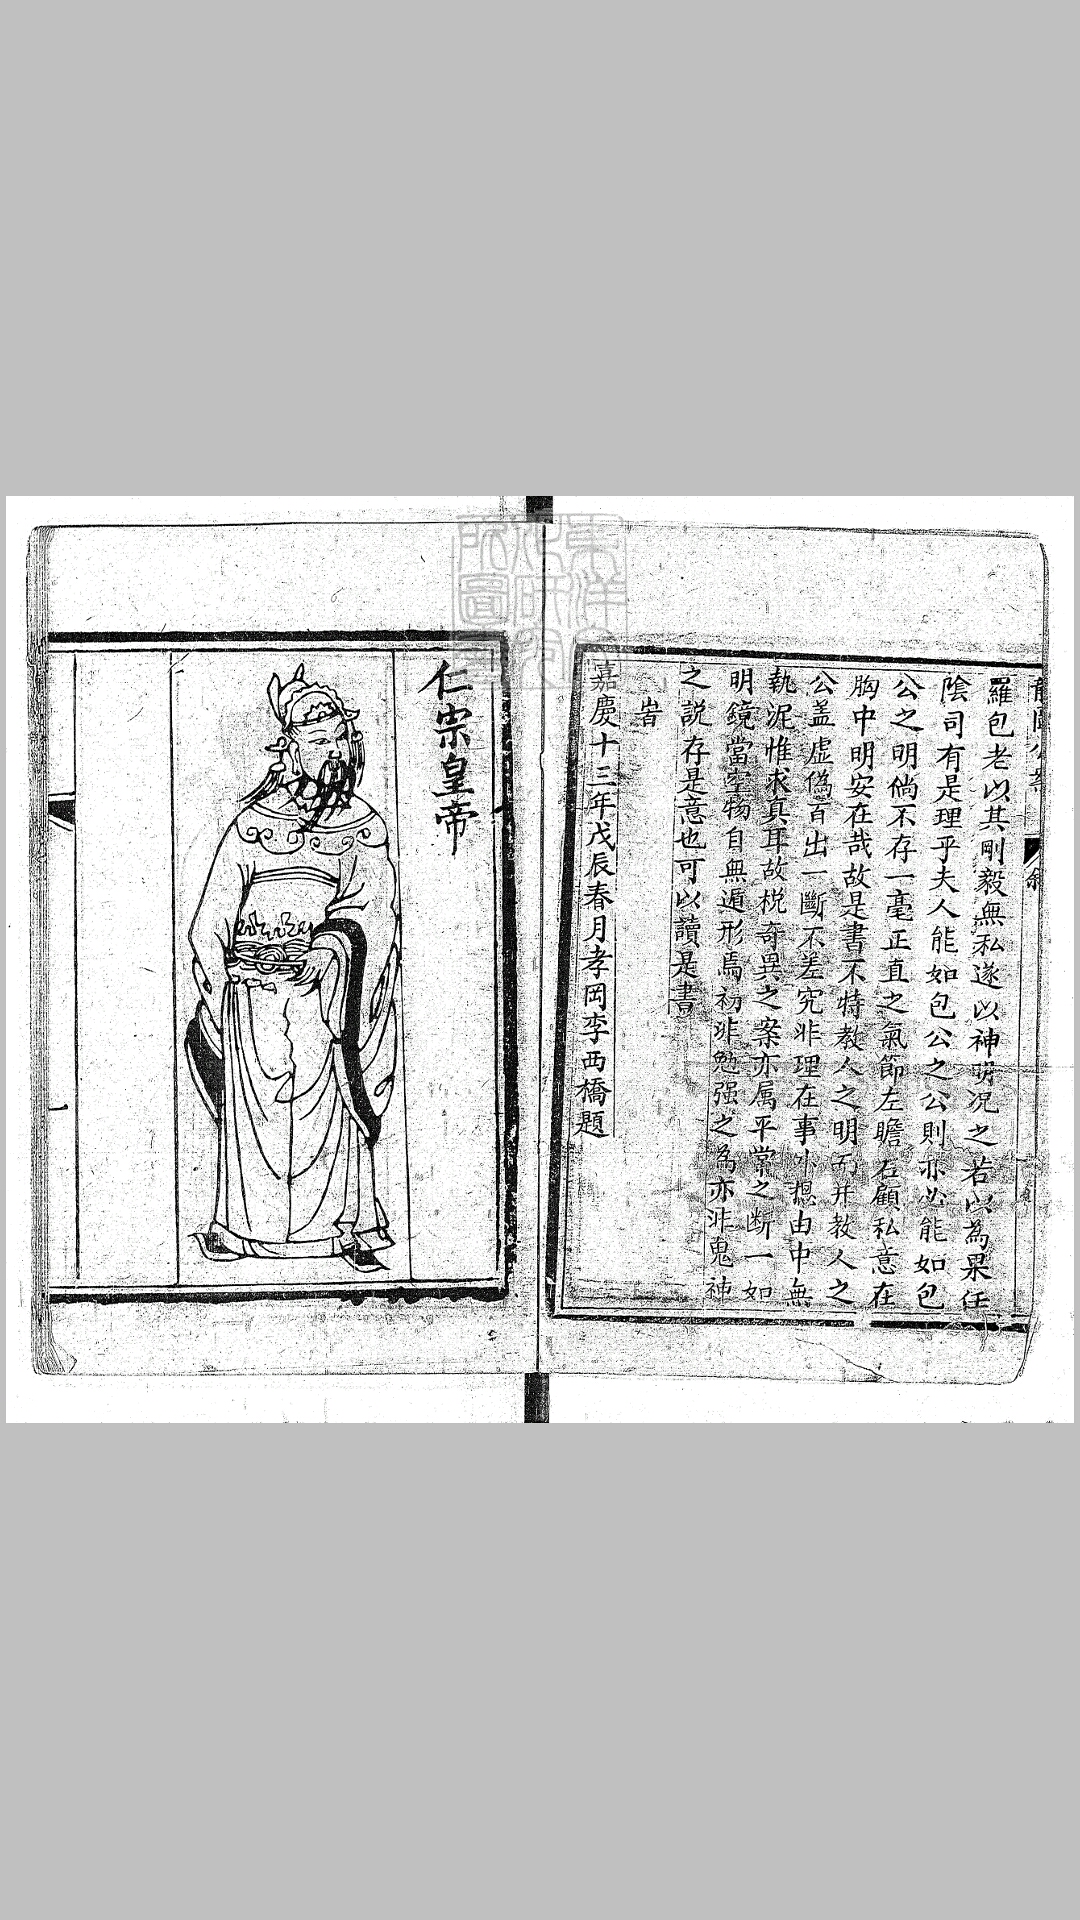 羅包老以其剛毅無私遂以神明况之若以為果任
陰司有是理乎夫人能如包公之公則亦必能如包
公之明倘不存一毫正直之氣節左瞻右顧私意在
胸中明安在哉故是書不特教人之明而并教人之
公盖虛偽百出一斷不差究非理在事外想由中無
執泥惟求真耳故棁奇異之案亦属平常之断一如
明鏡當空物自無遁形焉初非勉强之為亦非鬼神
之説存是意也可以讀是書
旹
嘉慶十三年戊辰春月孝岡李西橋題
仁宗皇帝
一